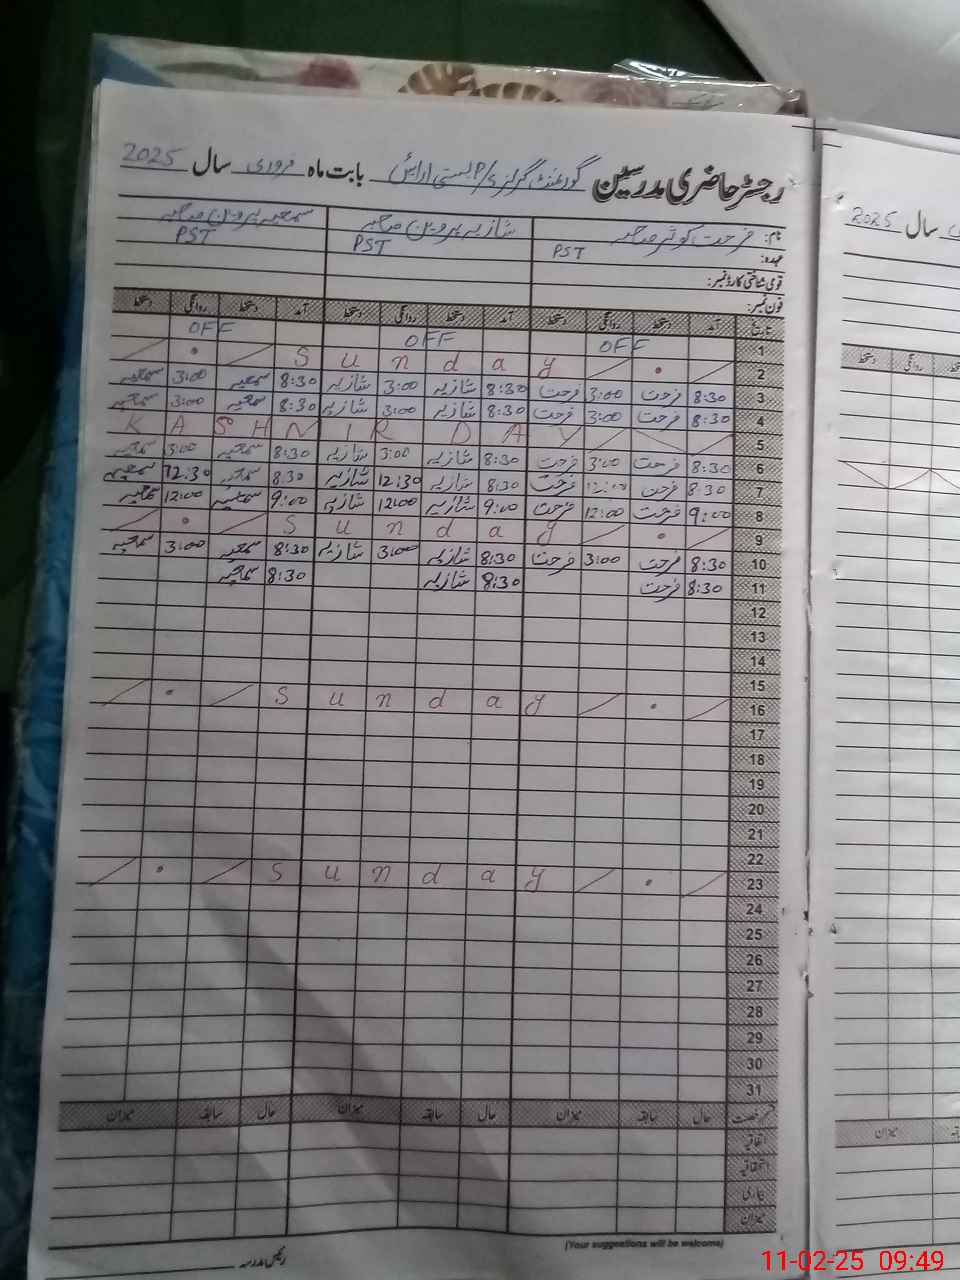 رجسٹر حاضری مدرسین گورنمنٹ گرلز P/S بستی ارائیں بابت ماہ فروری سال 2025
نام: فرحت کوثر صاحبہ شازیہ پروین صاحبہ سمعیہ پروین صاحبہ
عہدہ: PST PST PST
قومی شناختی کارڈ نمبر:
فون نمبر:
تاریخ آمد دستخط روانگی دستخط آمد دستخط روانگی دستخط آمد دستخط روانگی دستخط
1 OFF OFF OFF
2 Sunday
3 8:30 فرحت 3:00 فرحت 8:30 شازیہ 3:00 شازیہ 8:30 سمعیہ 3:00 سمعیہ
4 8:30 فرحت 3:00 فرحت 8:30 شازیہ 3:00 شازیہ 8:30 سمعیہ 3:00 سمعیہ
5 KASHMIR DAY
6 8:30 فرحت 3:00 فرحت 8:30 شازیہ 3:00 شازیہ 8:30 سمعیہ 3:00 سمعیہ
7 8:30 فرحت فرحت 8:30 شازیہ 12:30 شازیہ 8:30 سمعیہ 12:30 سمعیہ
8 9:00 فرحت 12:00 فرحت 9:00 شازیہ 12:00 شازیہ 9:00 سمعیہ 12:00 سمعیہ
9 Sunday
10 8:30 فرحت 3:00 فرحت 8:30 شازیہ 3:00 شازیہ 8:30 سمعیہ 3:00 سمعیہ
11 8:30 فرحت 8:30 شازیہ 8:30 سمعیہ
12
13
14
15
16 Sunday
17
18
19
20
21
22
23 Sunday
24
25
26
27
28
29
30
31
رخصت حال سابقہ میزان حال سابقہ میزان حال سابقہ میزان
اتفاقیہ
استحقاقیہ
بیماری
میزان
(Your suggestions will be welcome)
رئیس مدرسہ
2025 سال
دستخط روانگی دستخط
میزان
11-02-25 09:49